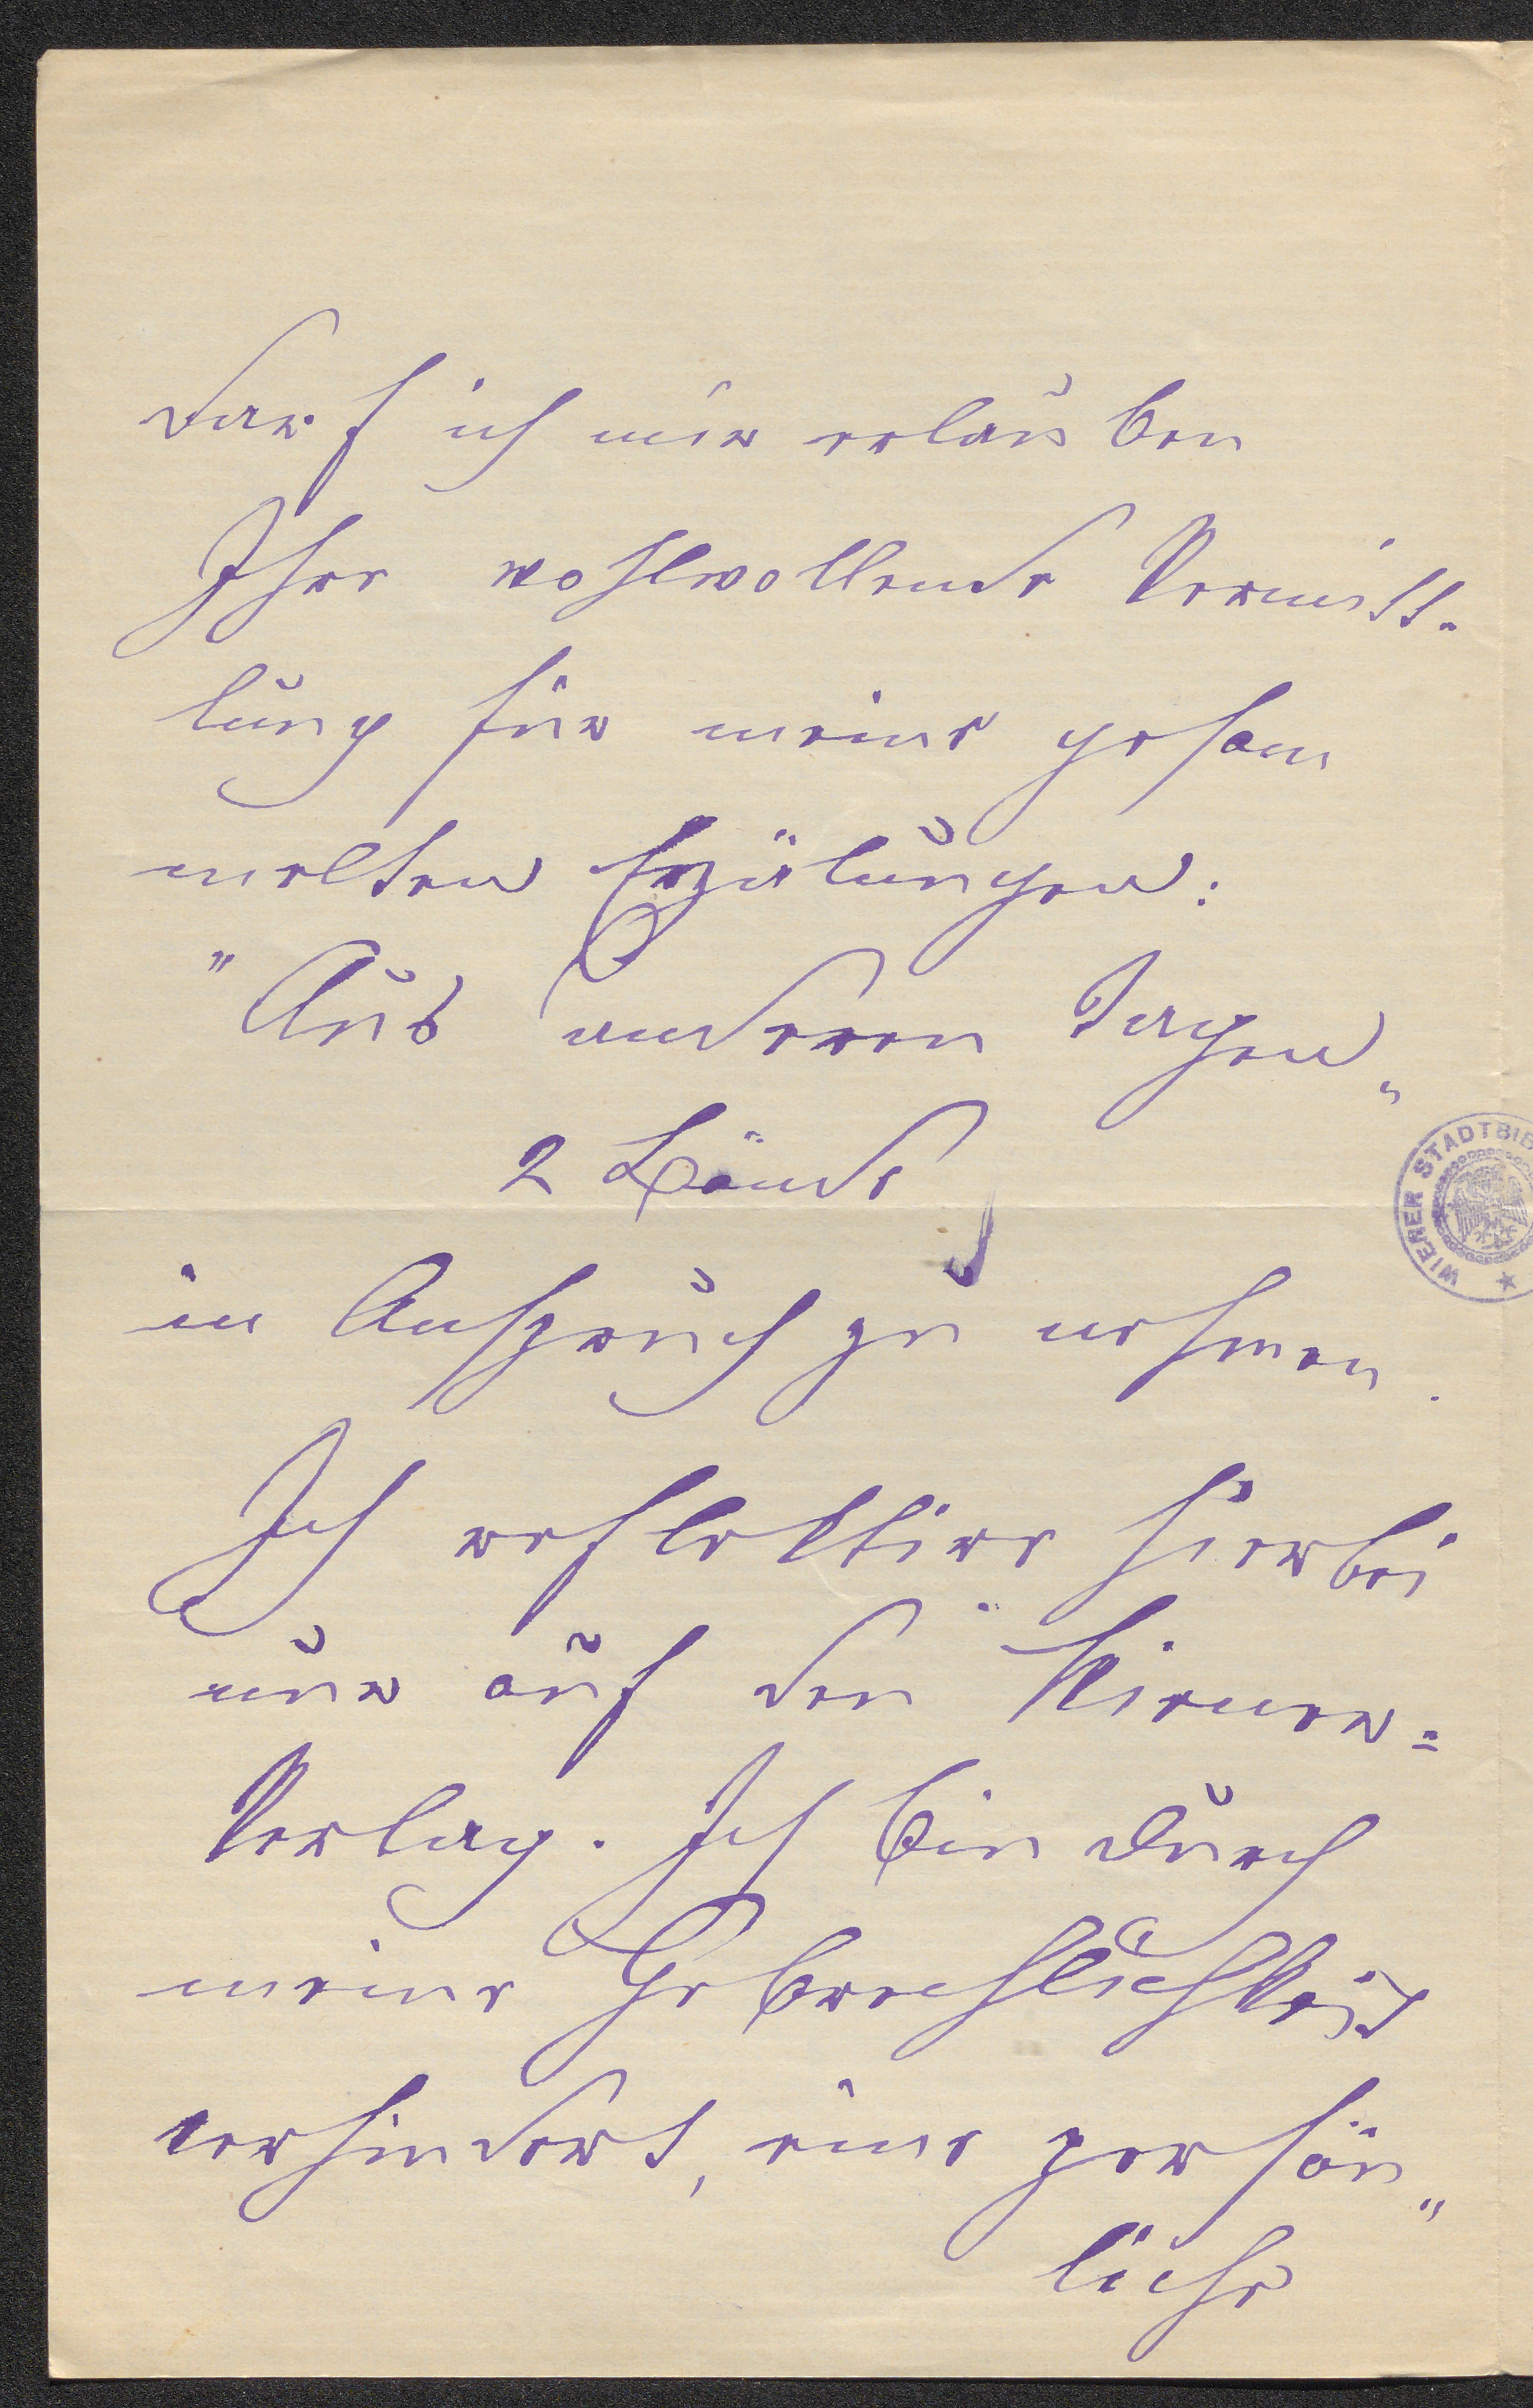 darf ich mir erlauben
Ihre wohlwollende Vermitt-
lung für meine gesam
melten Erzälungen:
"Aus anderen Tagen"
2 Bände
in Anspruch zu nehmen.
Ich reflektire hierbei
nur auf den Wiener=
Verlag. Ich bin durch
meine Gebrechlichkeit
verhindert, eine persön„
liche
WIENER STADTBIB